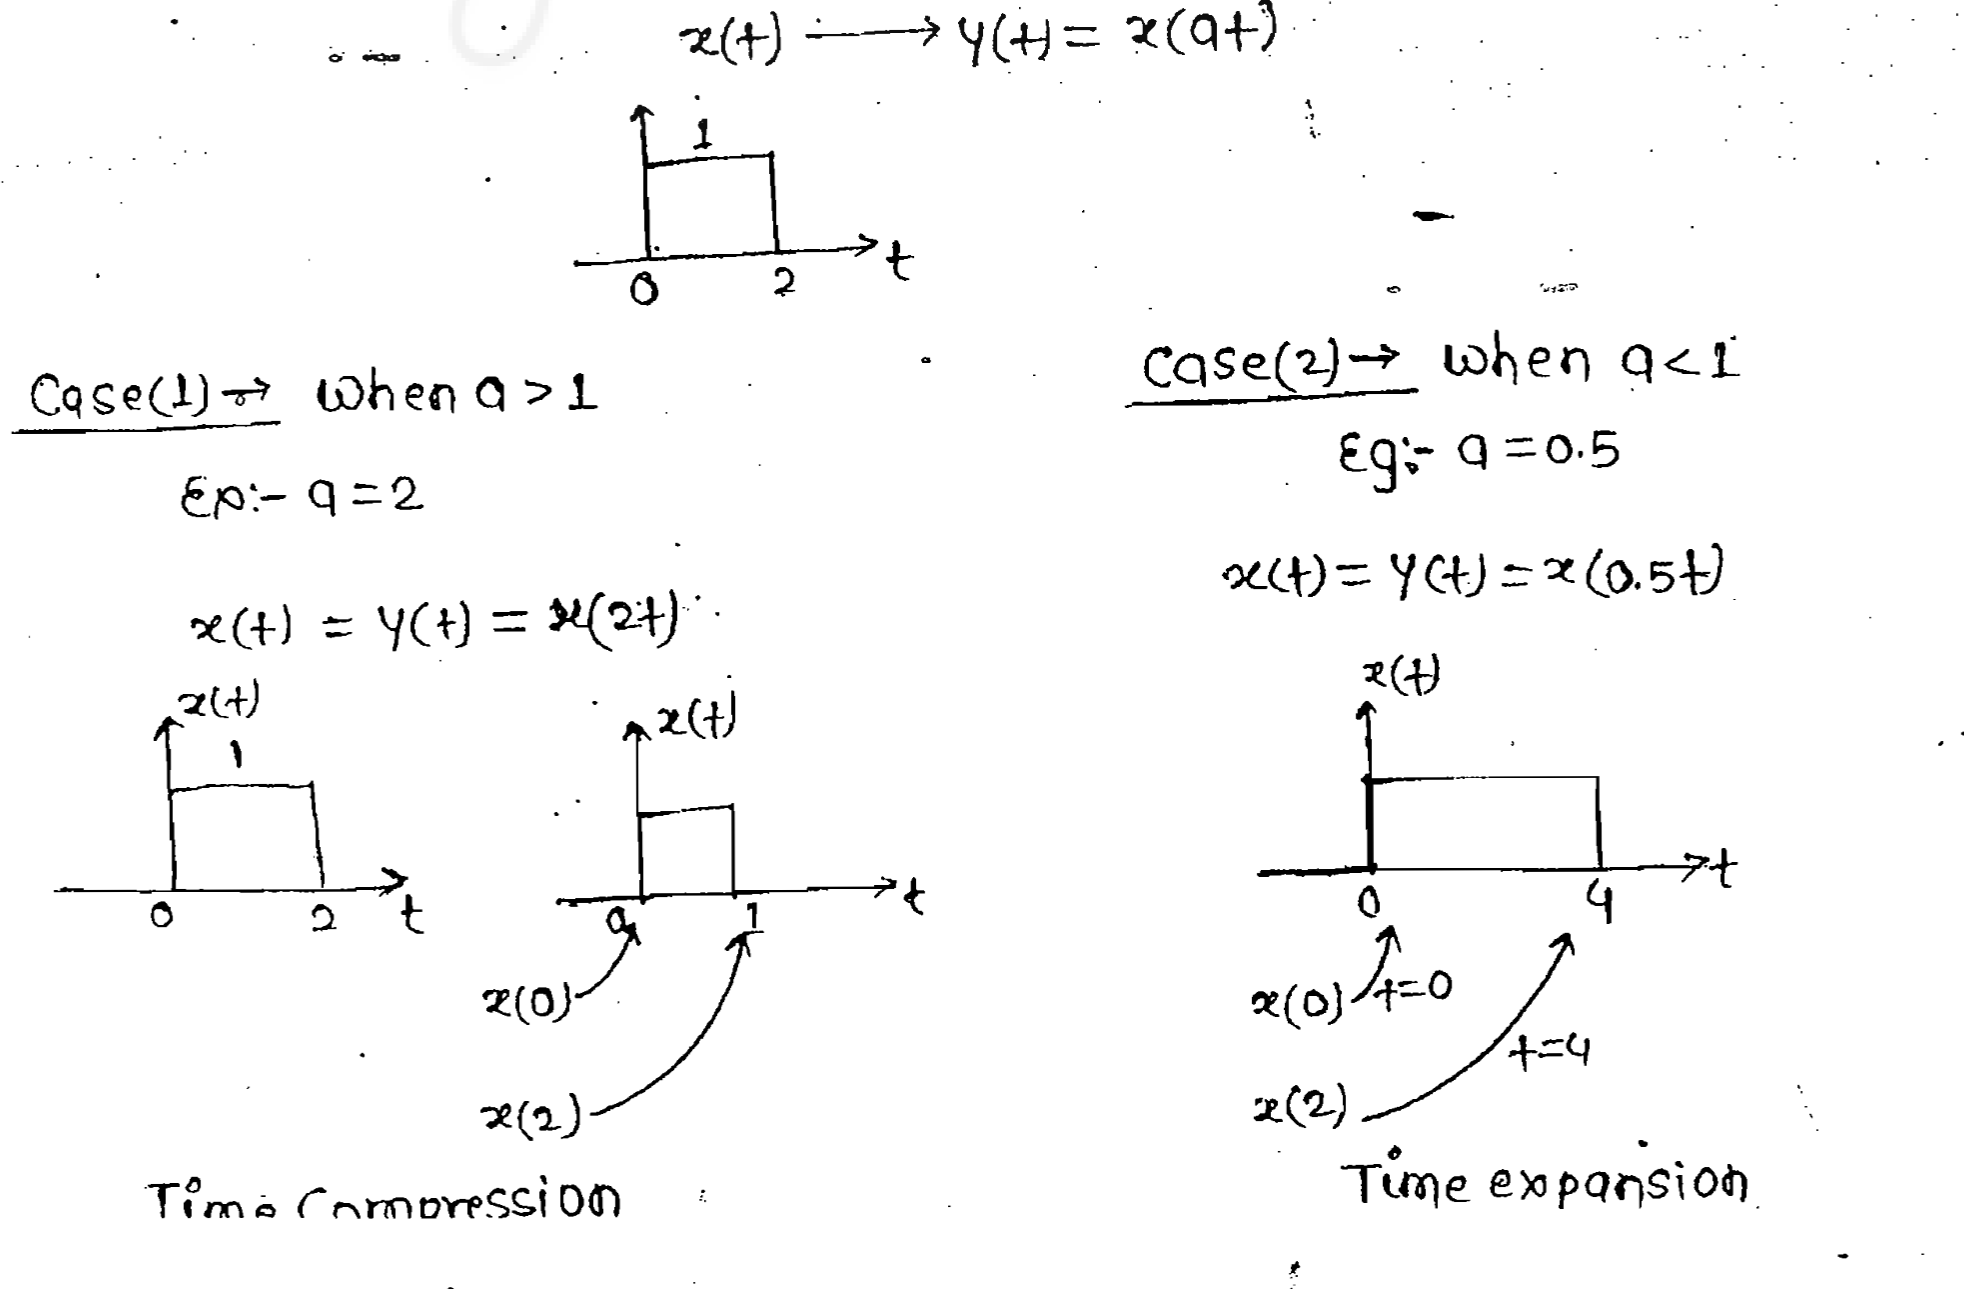 x(t) → y(t) = x(at)
1
t
0 2
Case(1) → when a > 1
Ex:- a = 2
x(t) = y(t) = x(2t)
x(t)
1
0 2 t
x(t)
0 1 t
x(0)
x(2)
Time Compression
Case(2) → when a < 1
Eg:- a = 0.5
x(t) = y(t) = x(0.5t)
x(t)
t
0 4
x(0) t=0
t=4
x(2)
Time expansion